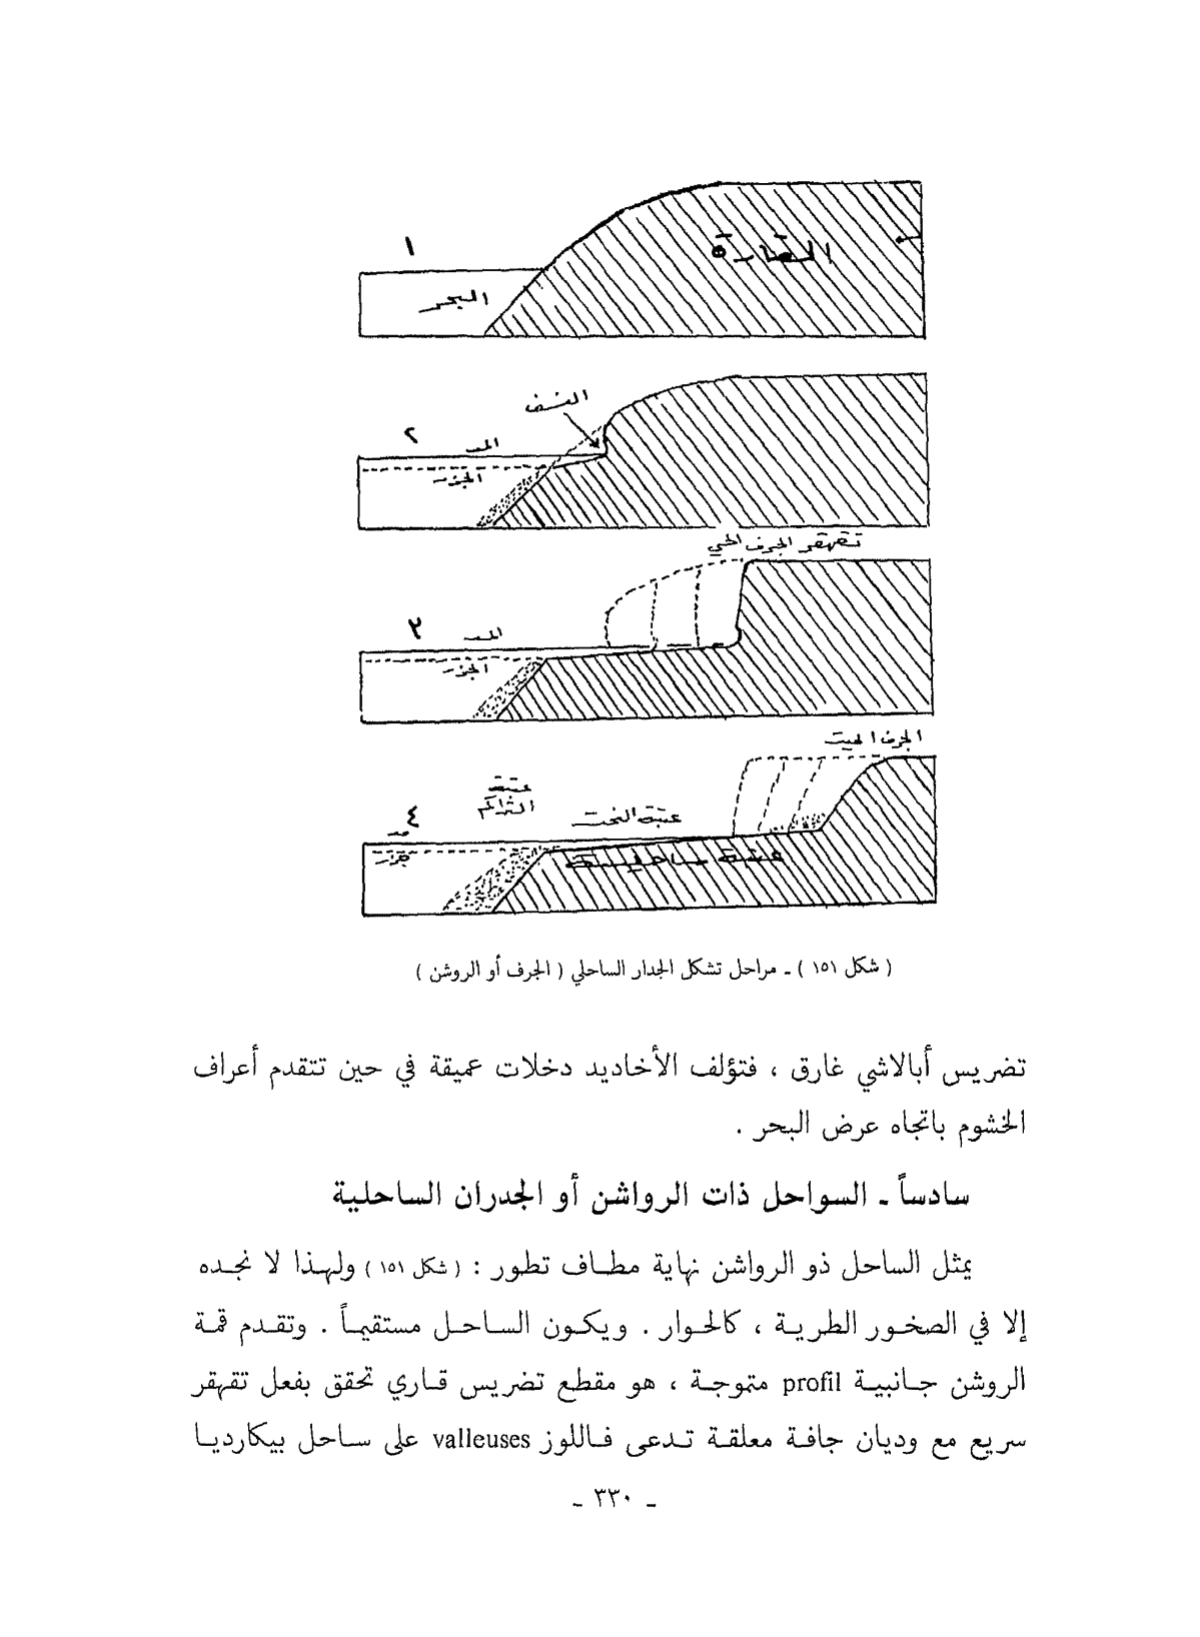 ١
القارة
البحر
النسف
٢
المد
الجزر
تقهقر الجرف الحي
٣
المد
الجزر
الجرف الميت
عتبة
التراكم
عتبة النحت
٤
مد
جزر
عتبة ساحلية
( شكل ١٥١ ) ـ مراحل تشكل الجدار الساحلي ( الجرف أو الروشن )
تضريس أبالاشي غارق ، فتؤلف الأخاديد دخلات عميقة في حين تتقدم أعراف
الخشوم باتجاه عرض البحر .
سادساً ـ السواحل ذات الرواشن أو الجدران الساحلية
يمثل الساحل ذو الرواشن نهاية مطاف تطور : ( شكل ١٥١ ) ولهذا لا نجده
إلا في الصخور الطرية ، كالحوار . ويكون الساحل مستقيماً . وتقدم قمة
الروشن جانبية profil متموجة ، هو مقطع تضريس قاري تحقق بفعل تقهقر
سريع مع وديان جافة معلقة تدعى فاللوز valleuses على ساحل بيكارديا
ـ ٣٣٠ ـ